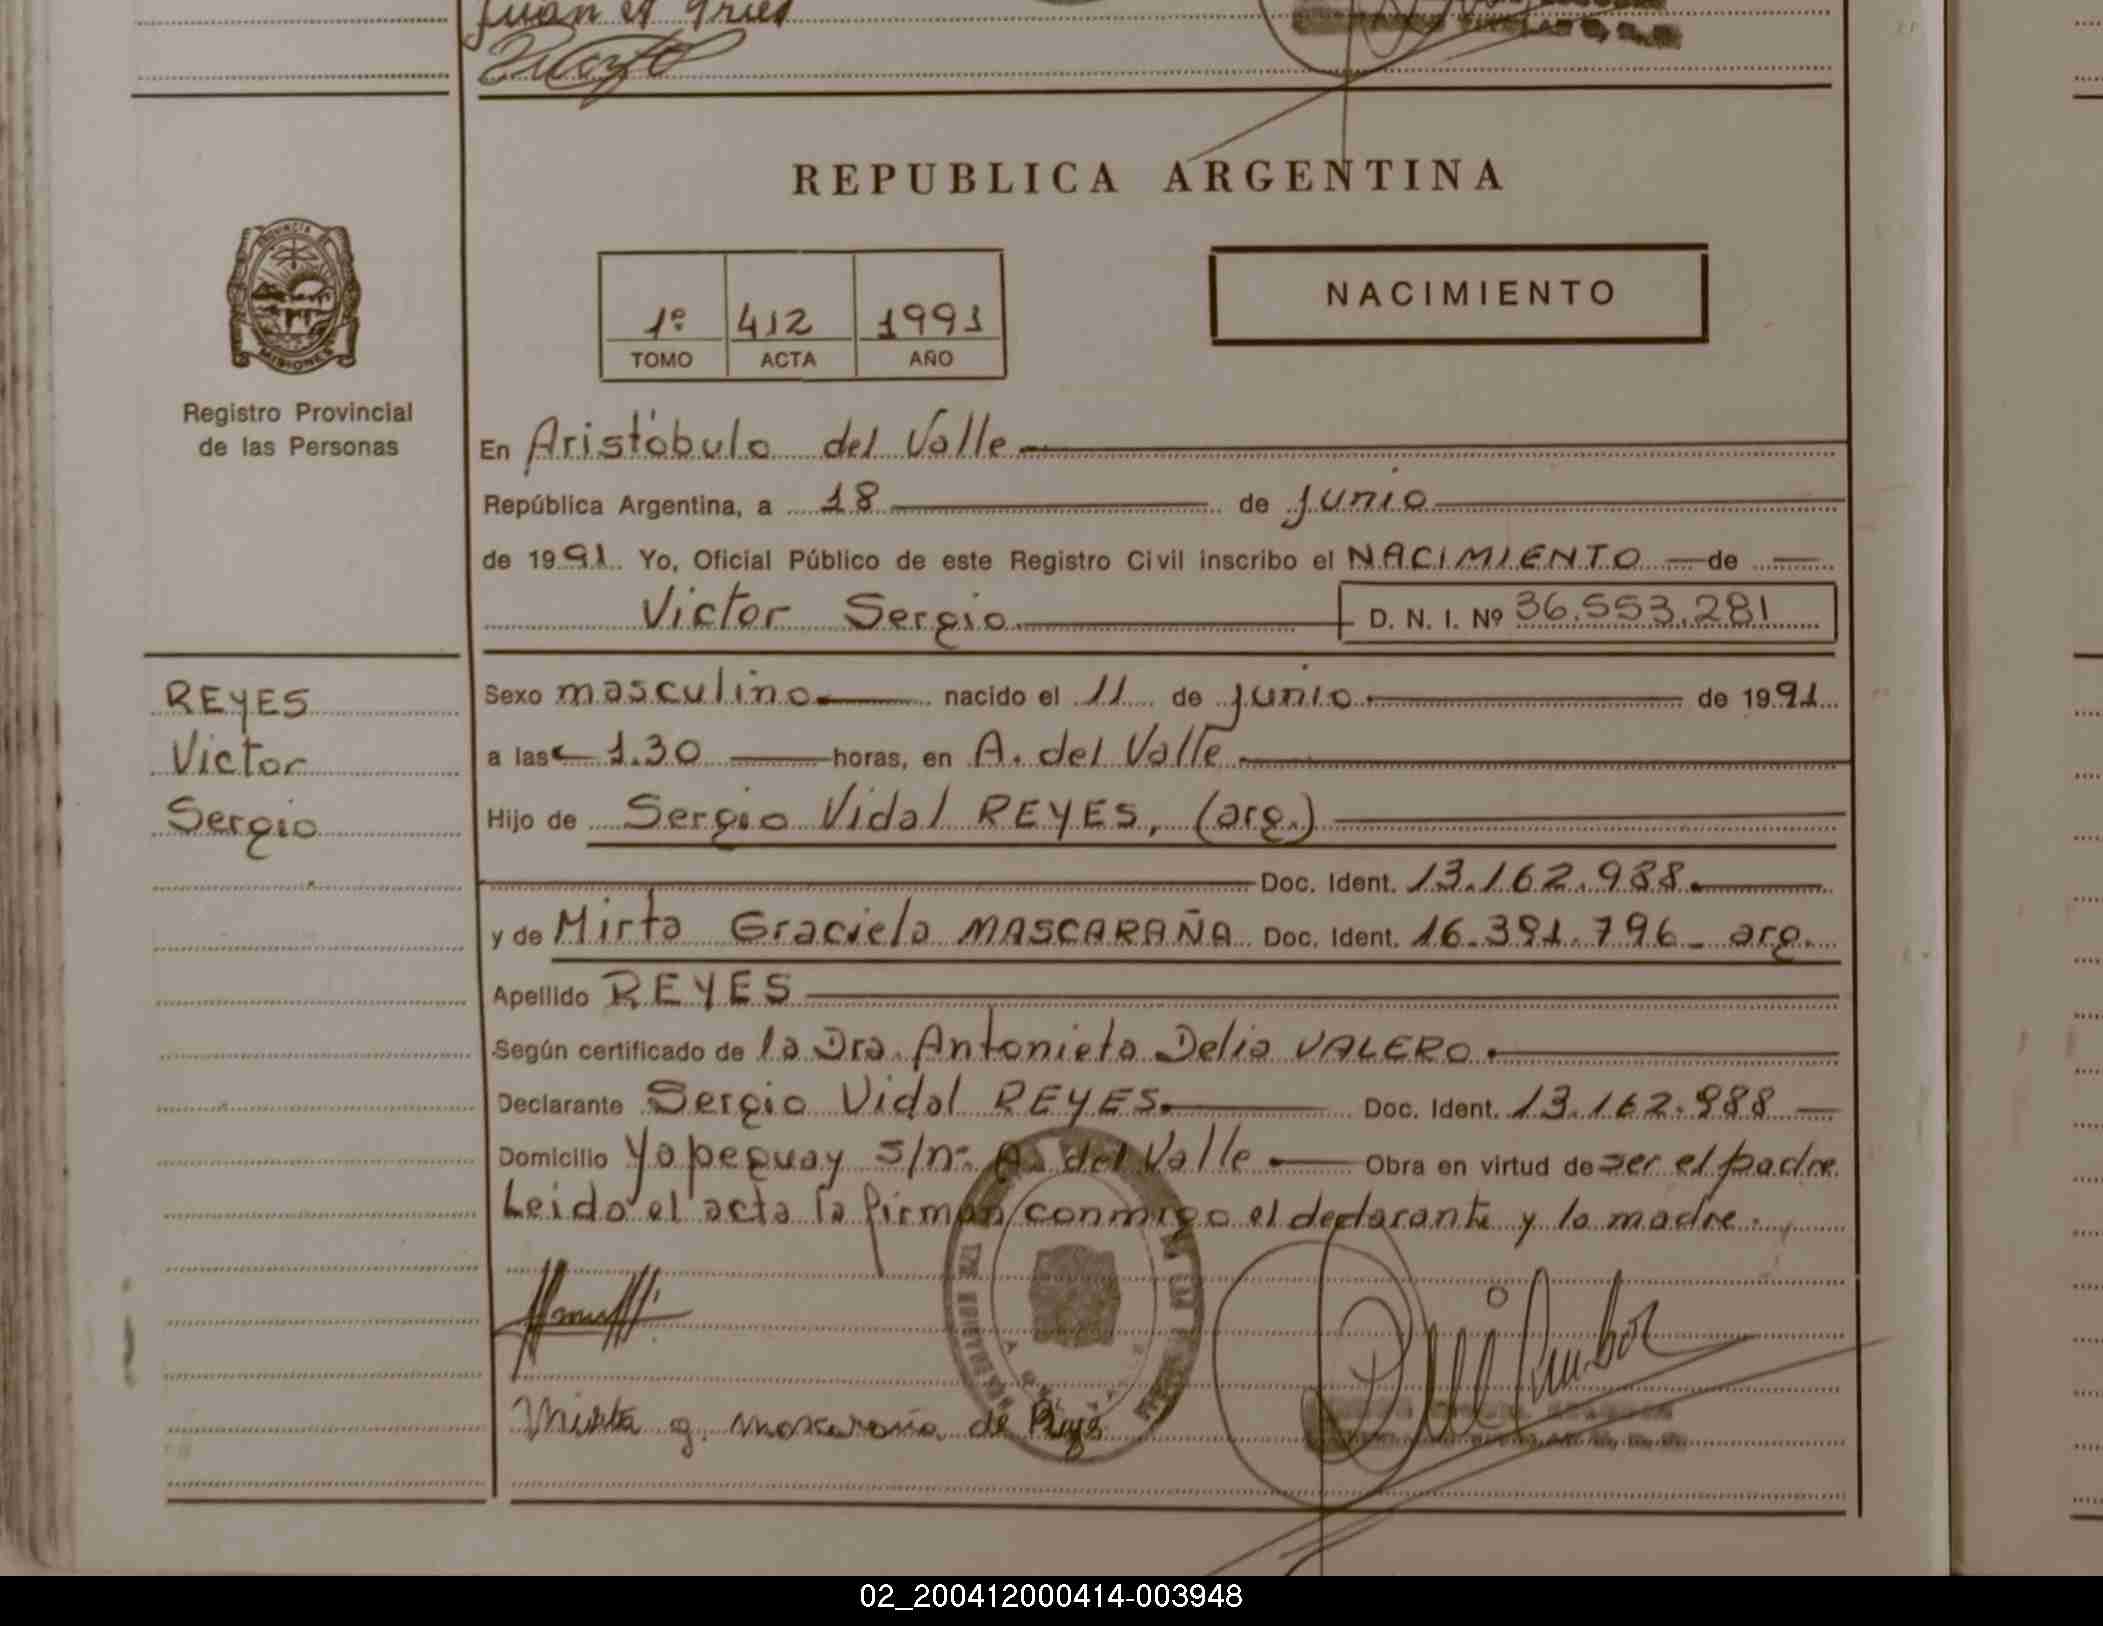 Juan A Gries
REPUBLICA ARGENTINA
PROVINCIA DE
MISIONES
Registro Provincial
de las Personas
1º 412 1991
TOMO ACTA AÑO
NACIMIENTO
En Aristóbulo del Valle
República Argentina, a 18 de junio
de 1991. Yo, Oficial Público de este Registro Civil inscribo el NACIMIENTO de
Victor Sergio D. N. I. Nº 36.553.281
REYES
Victor
Sergio
Sexo masculino nacido el 11 de junio de 1991
a las 1.30 horas, en A. del Valle
Hijo de Sergio Vidal REYES, (arg.)
Doc. Ident. 13.162.988
y de Mirta Graciela MASCARAÑA Doc. Ident. 16.391.796 - arg.
Apellido REYES
Según certificado de la Dra. Antonieta Delia VALERO
Declarante Sergio Vidal REYES Doc. Ident. 13.162.988
Domicilio Yapeguay s/nº A. del Valle Obra en virtud de ser el padre
Leido el acta la firman conmigo el declarante y la madre.
Mirta g. mascaraña de Reyes
02_200412000414-003948